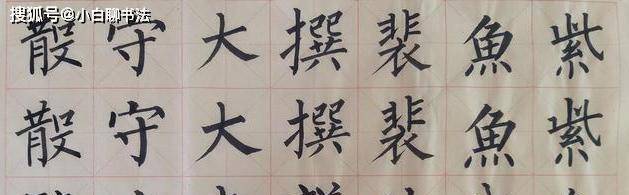 搜狐号@小白聊书法
散守大撰裴魚紫
散守大撰裴魚紫